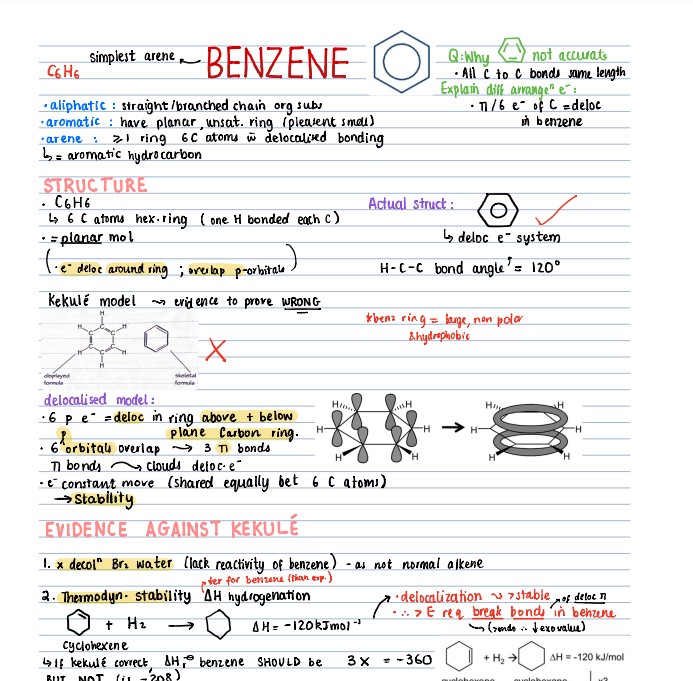 simplest arene
BENZENE
C6H6
Q: Why not accurate
· All C to C bonds same length
Explain diff arrangeⁿ e⁻:
· π/6 e⁻ of C = deloc
in benzene
· aliphatic : straight/branched chain org subs
· aromatic : have planar, unsat. ring (pleasent smell)
· arene : ≥1 ring 6C atoms w̄ delocalised bonding
↳ = aromatic hydrocarbon
STRUCTURE
· C6H6
↳ 6 C atoms hex.ring (one H bonded each C)
· = planar mol
(· e⁻ deloc around ring ; overlap p-orbitals)
Actual struct :
↳ deloc e⁻ system
H-C-C bond angle = 120°
Kekulé model ⇝ evidence to prove WRONG
H
H C C H
C C
H C C H
H
displayed
formula
skeletal
formula
*benz ring = large, non polar
& hydrophobic
delocalised model:
· 6 p e⁻ = deloc in ring above + below
plane Carbon ring.
· 6 orbitals overlap → 3 π bonds
π bonds → clouds deloc. e⁻
· e⁻ constant move (shared equally bet 6 C atoms)
→ Stability
H H
H H
H H
→
H H
H H
H H
EVIDENCE AGAINST KEKULÉ
1. x decolⁿ Br₂ water (lack reactivity of benzene) - as not normal alkene
↑ver for benzene (than exp.)
2. Thermodyn. stability ΔH hydrogenation
· delocalization ⇝ > stable → of deloc π
· ∴ > E req break bonds in benzene
↳ (↓ exo value)
+ H₂ → ΔH = -120kJmol⁻¹
cyclohexene
↳ If kekulé correct, ΔH benzene SHOULD be 3 x = -360
+ H₂ → ΔH = -120 kJ/mol
BUT NOT (is -208)
cyclohexene cyclohexane
x3